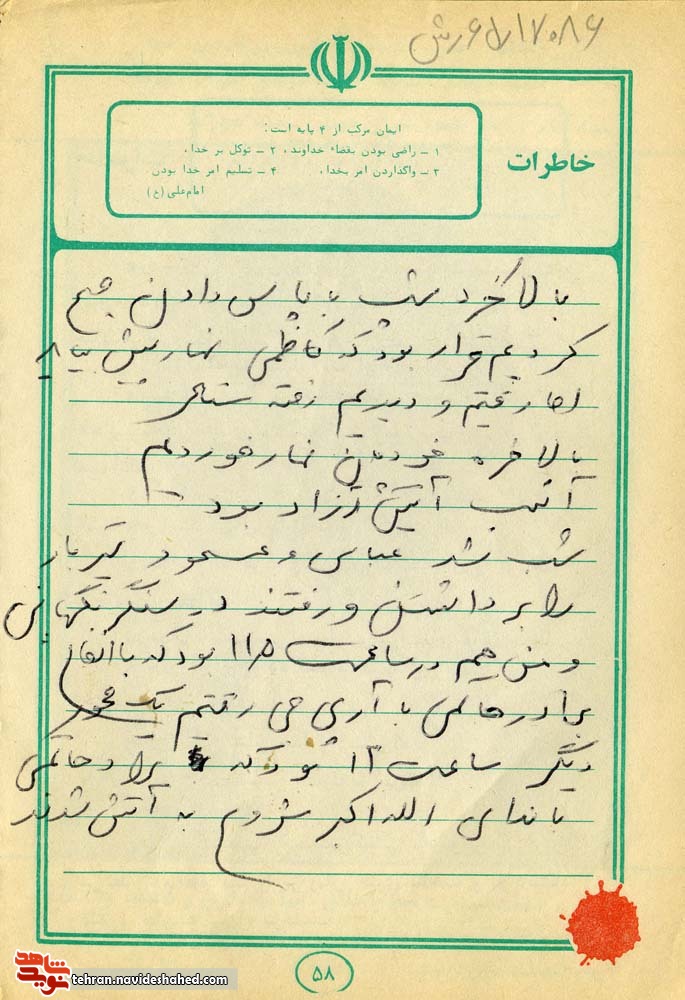 ۱۷۰۸۶
خاطرات
ایمان مرکب از ۴ پایه است:
۱ ــ راضی بودن بقضاء خداوند، ۲ ــ توکل بر خدا،
۳ ــ واگذاردن امر بخدا، ۴ ــ تسلیم امر خدا بودن
امام علی (ع)
بالاخره شب با پاس دادن صبح
کردیم قرار بود که کاظمی نهار پیش بیاید
اما رفتیم و دیدیم رفته
بالاخره خودمان نهار خوردیم
آنشب آتش آزاد بود
شب شد عباس و مسعود تیربار
را برداشتن و رفتند در سنگر نگهبانی
و من هم در ساعت ۱۱/۵ بود که با اتفاق
برادر حاتمی با آرپی جی رفتیم یک محور
دیگر ساعت ۱۲ بود که برادر حاتمی
با ندای الله اکبر شروع به آتش شدند
۵۸
نوید شاهد
tehran.navideshahed.com